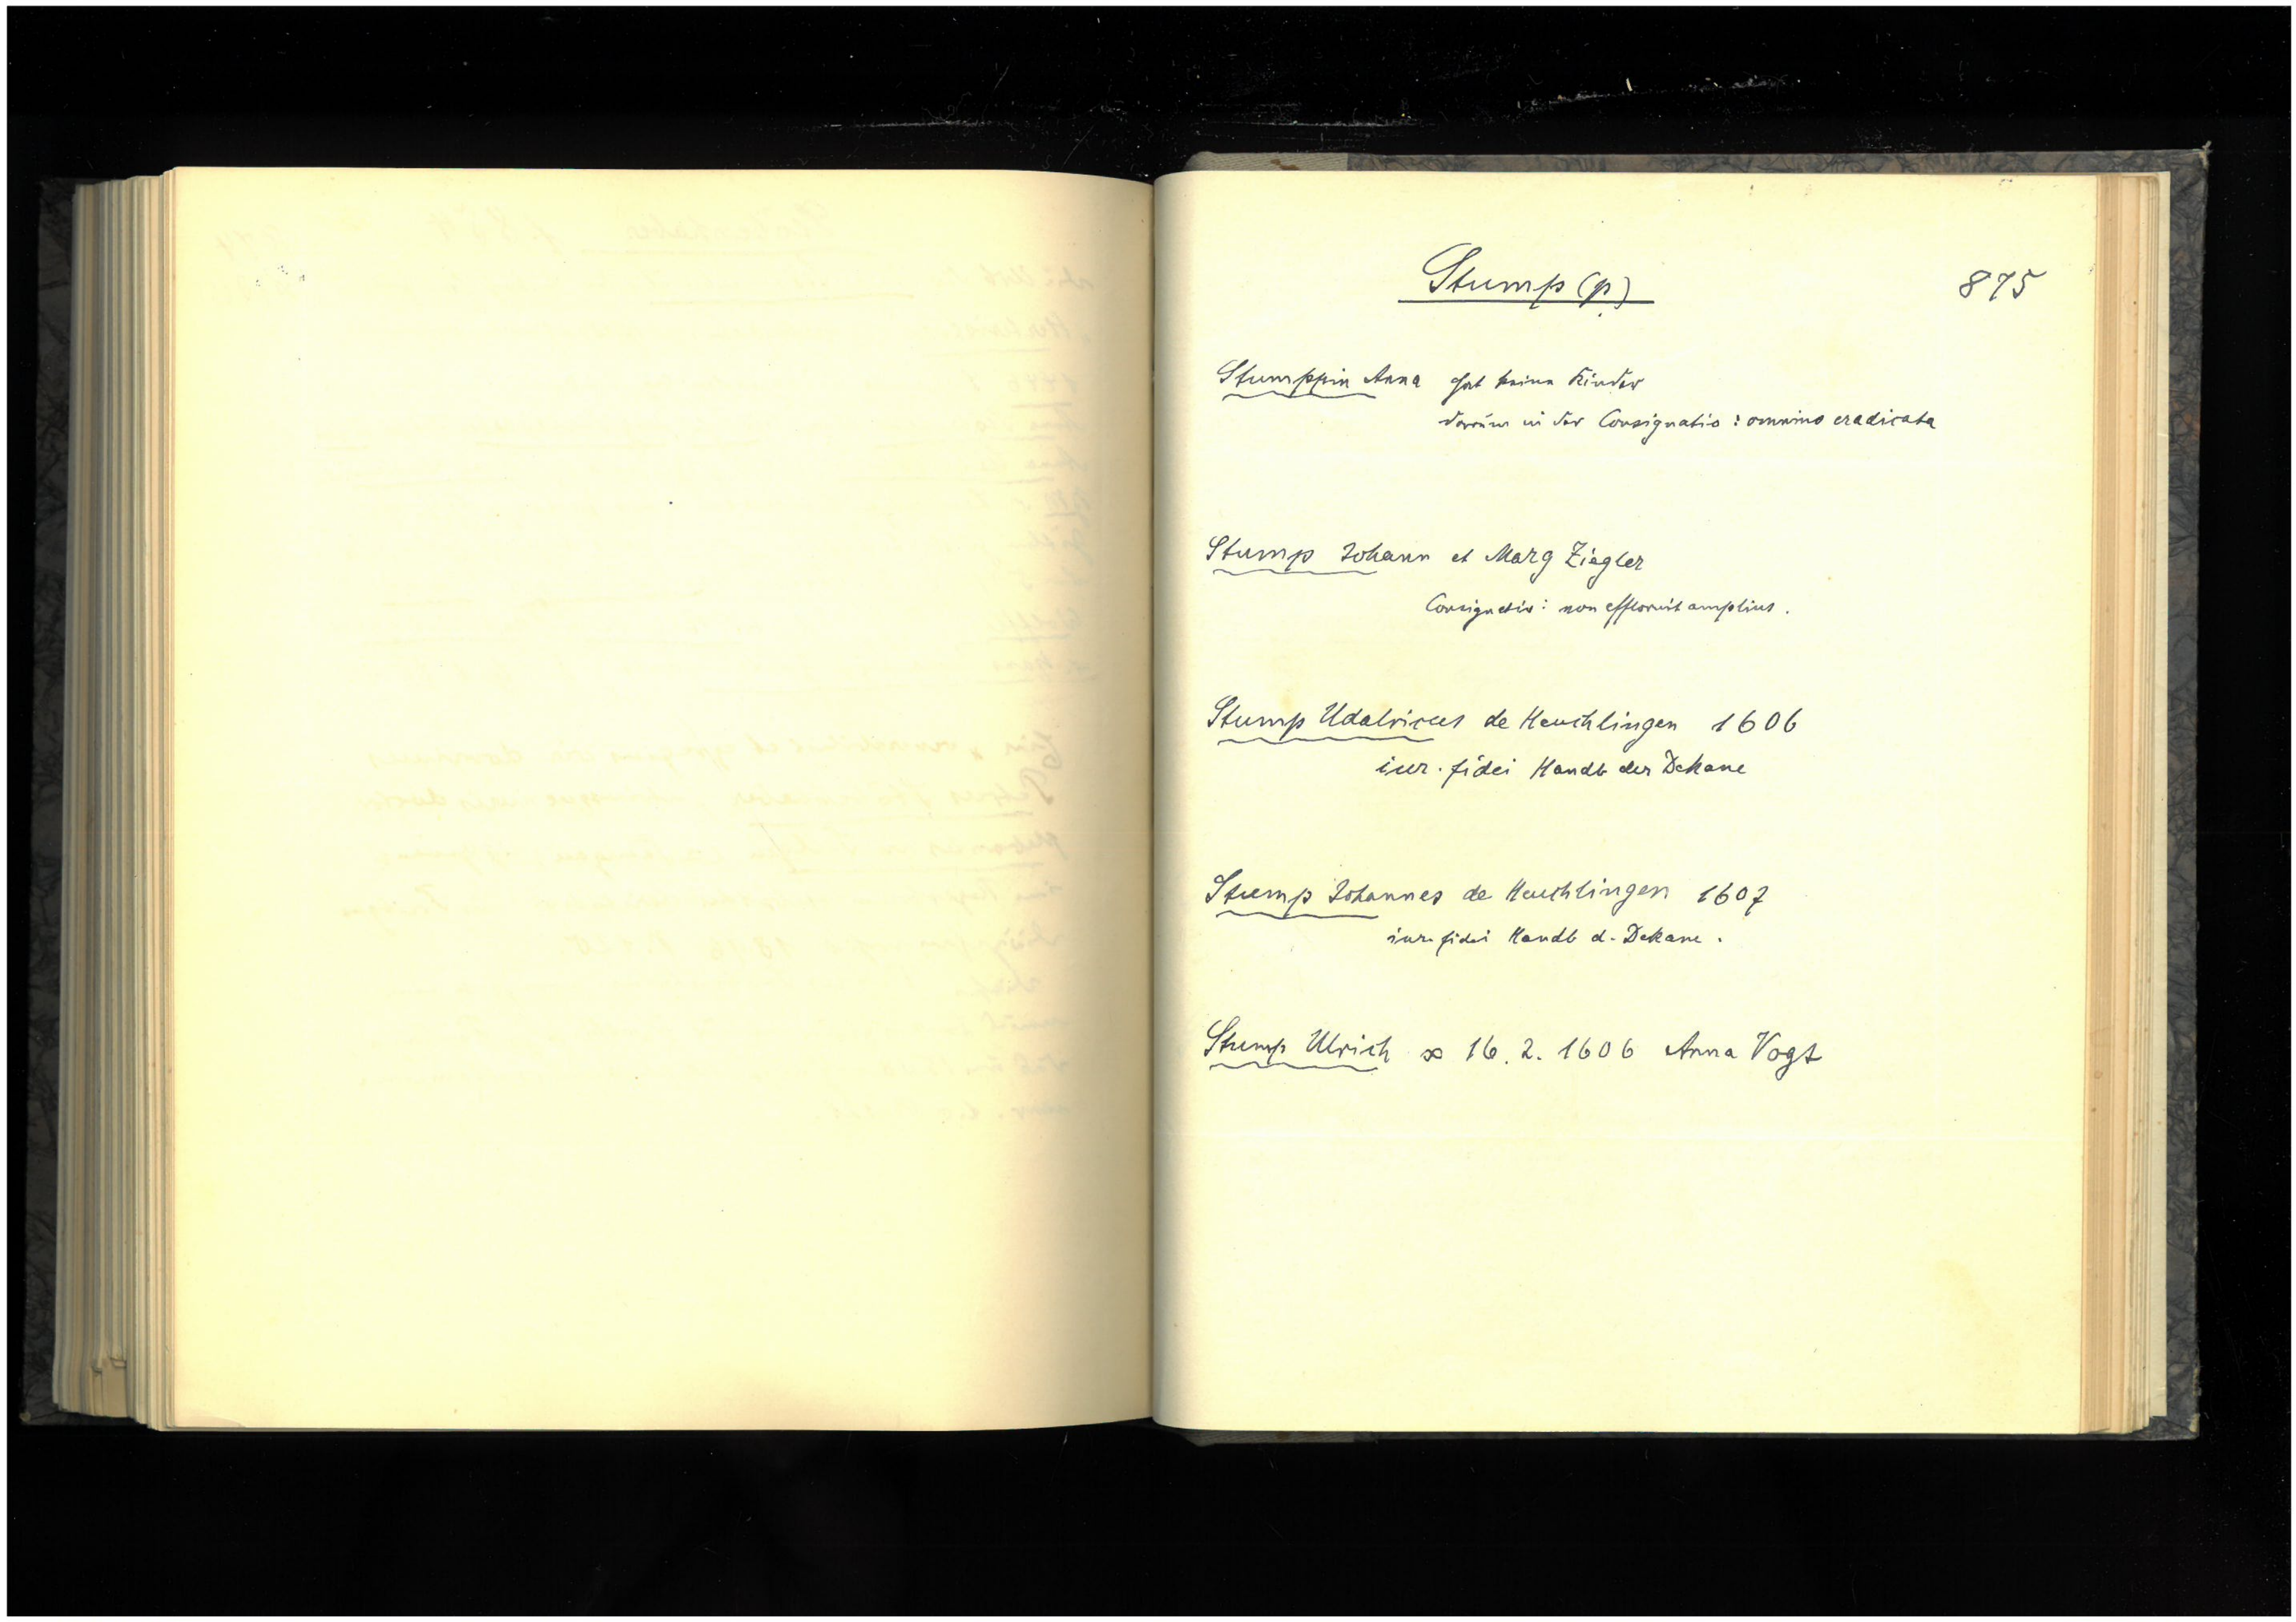 Stump(p)
875
Stumppin Anna hat keine Kinder
darum in der Consignatio: omnino eradicata
Stump Johann et Marg Ziegler
Consignatio: non effloruit amplius.
Stump Udalricus de Heuchlingen 1606
iur. fidei Handb der Dekane
Stump Johannes de Heuchlingen 1607
iur. fidei Handb d. Dekane.
Stump Ulrich ∞ 16. 2. 1606 Anna Vogt